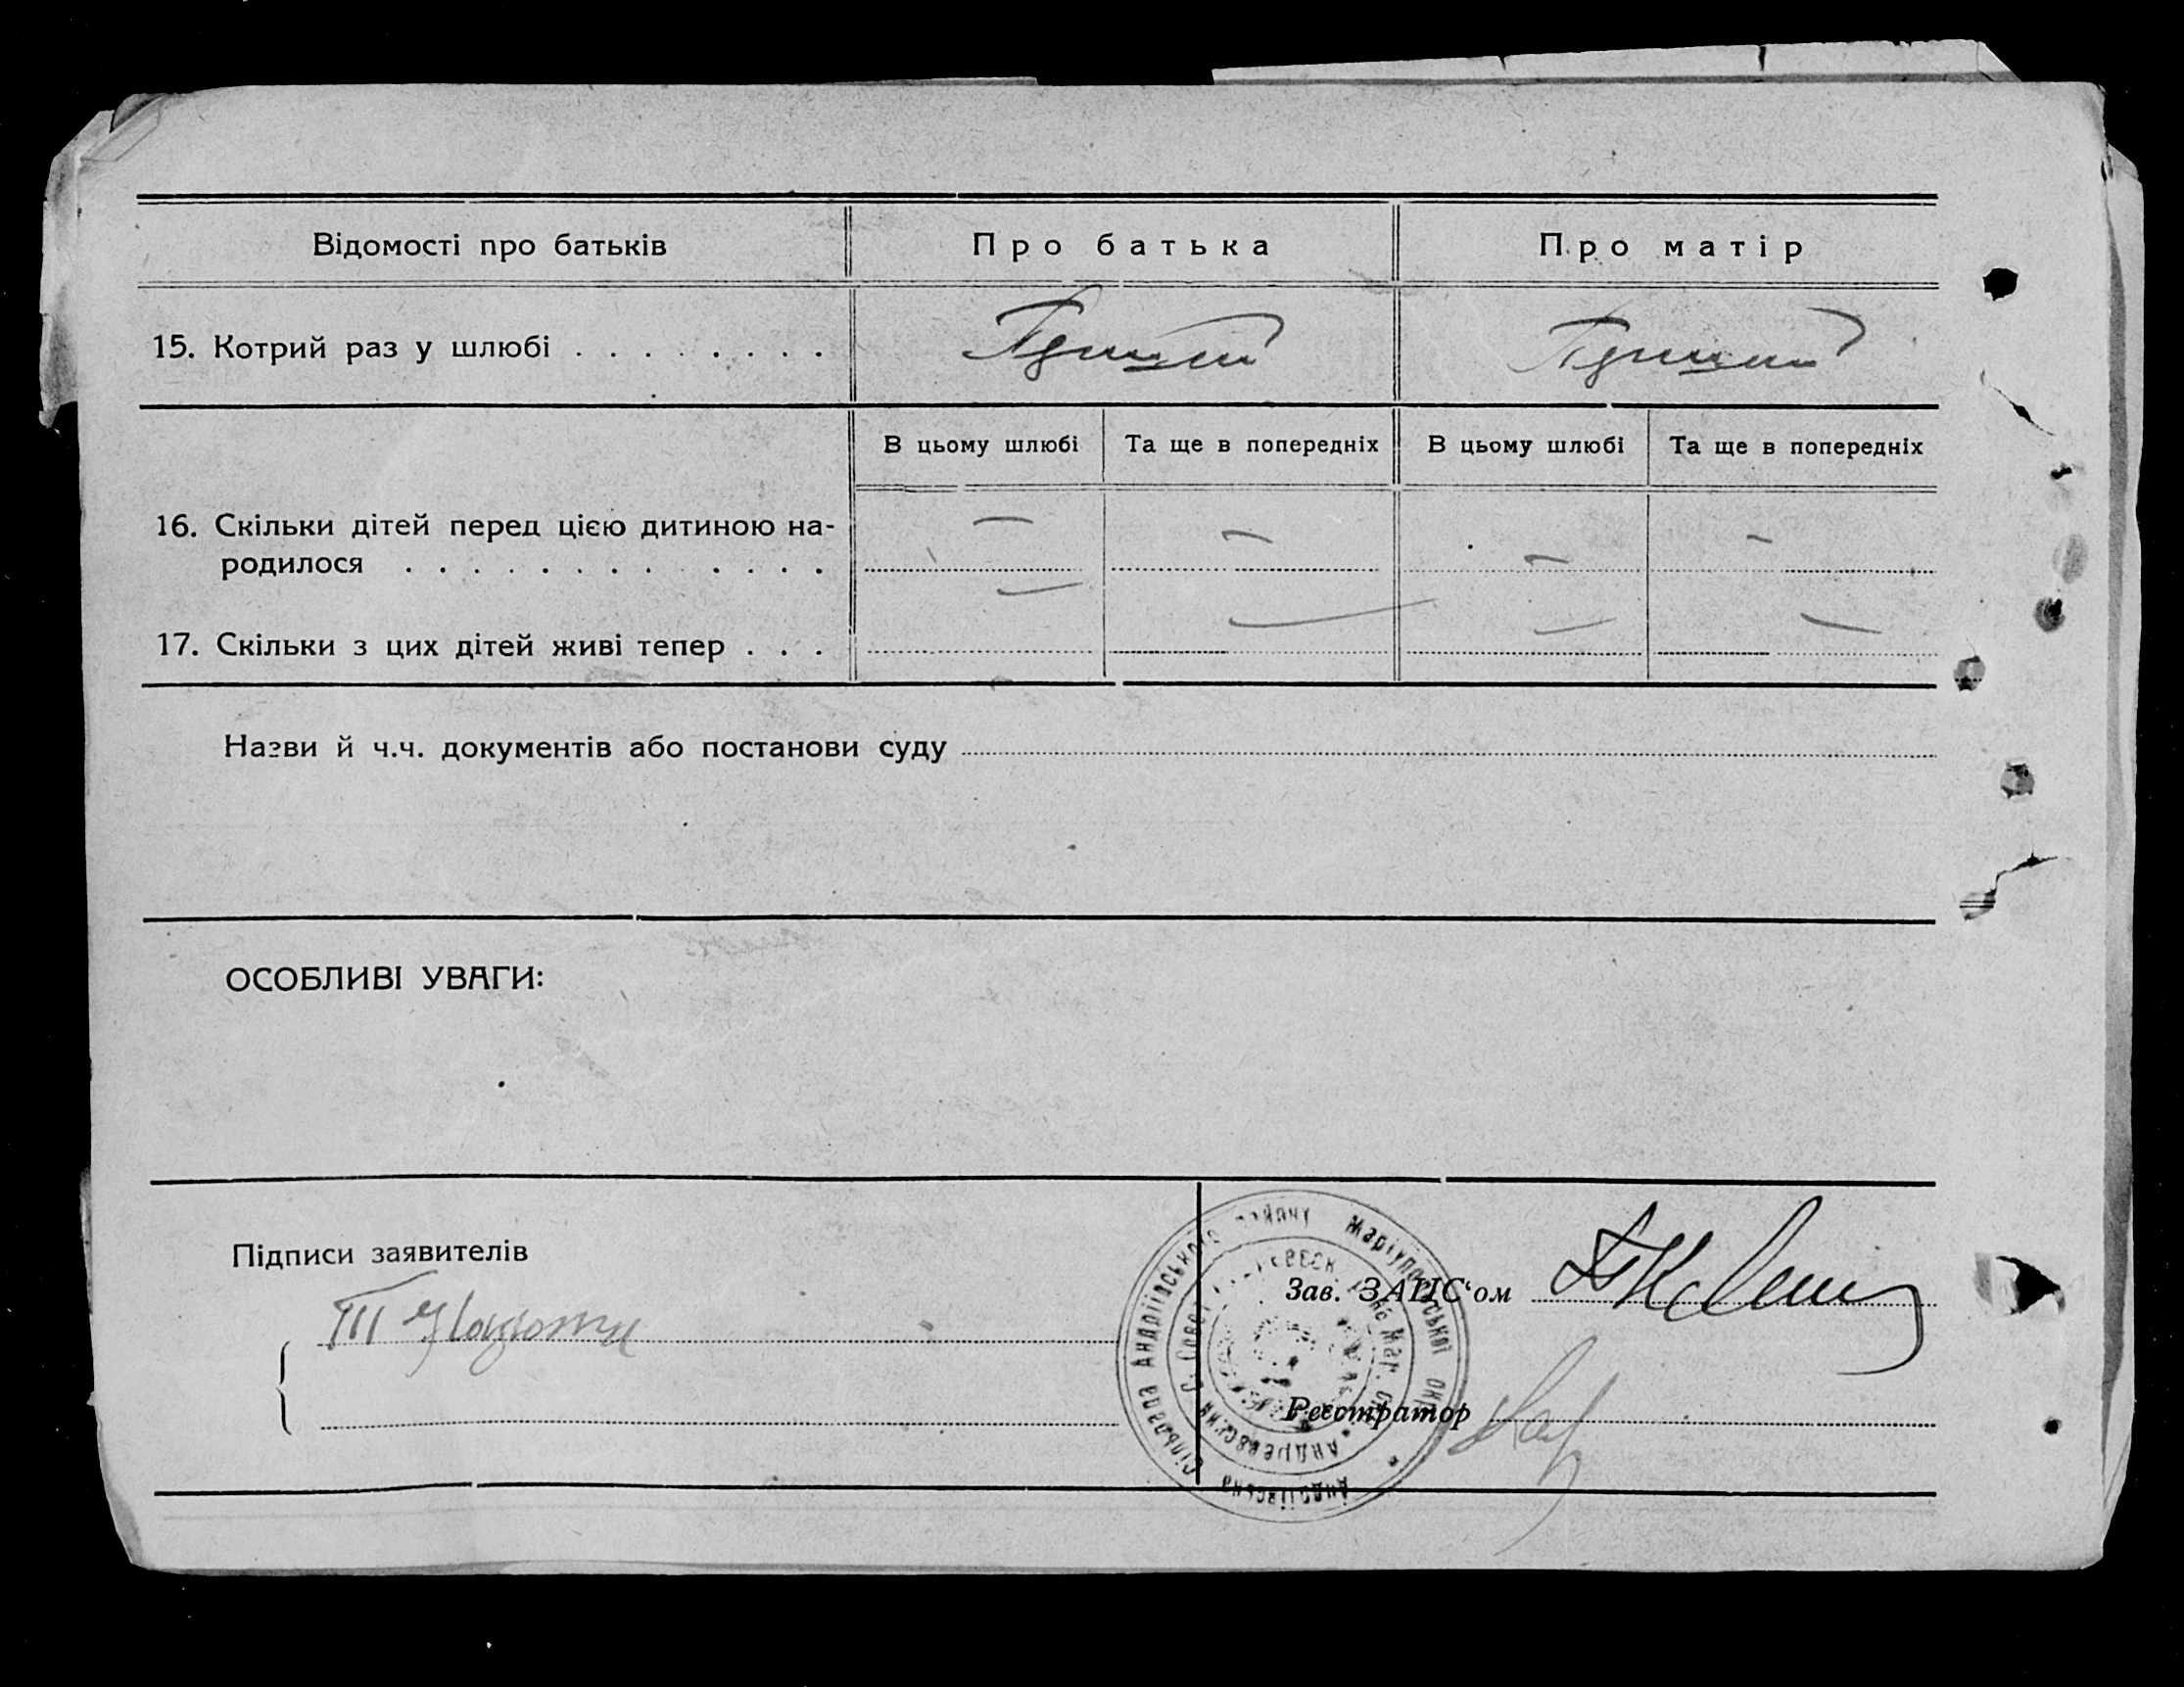 Відомості про батьків
Про батька
Про матір
15. Котрий раз у шлюбі . . . . . . . .
В цьому шлюбі
Та ще в попередніх
В цьому шлюбі
Та ще в попередніх
16. Скільки дітей перед цією дитиною на-
родилося . . . . . . . . . . . . .
— — — —
17. Скільки з цих дітей живі тепер . . .
— — — —
Назви й ч.ч. документів або постанови суду
ОСОБЛИВІ УВАГИ:
Підписи заявителів
Зав. ЗАПС'ом
Реєстратор
Андріївська Сільрада Андріївського району Маріупольської окр.